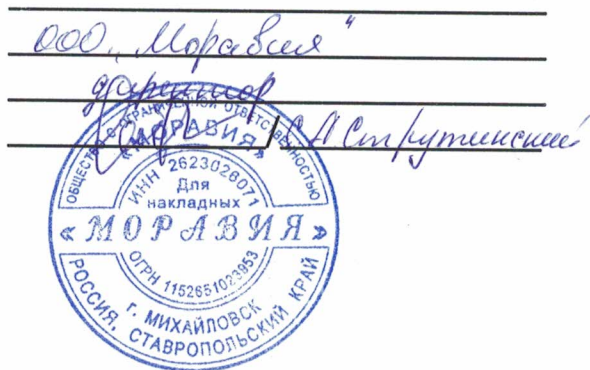 ООО „Моравия"
директор
/ С А Струтинский
ОБЩЕСТВО С ОГРАНИЧЕННОЙ ОТВЕТСТВЕННОСТЬЮ
«МОРАВИЯ»
ИНН 2623026071
Для
накладных
«МОРАВИЯ»
ОГРН 1152651023953
г. МИХАЙЛОВСК
РОССИЯ, СТАВРОПОЛЬСКИЙ КРАЙ